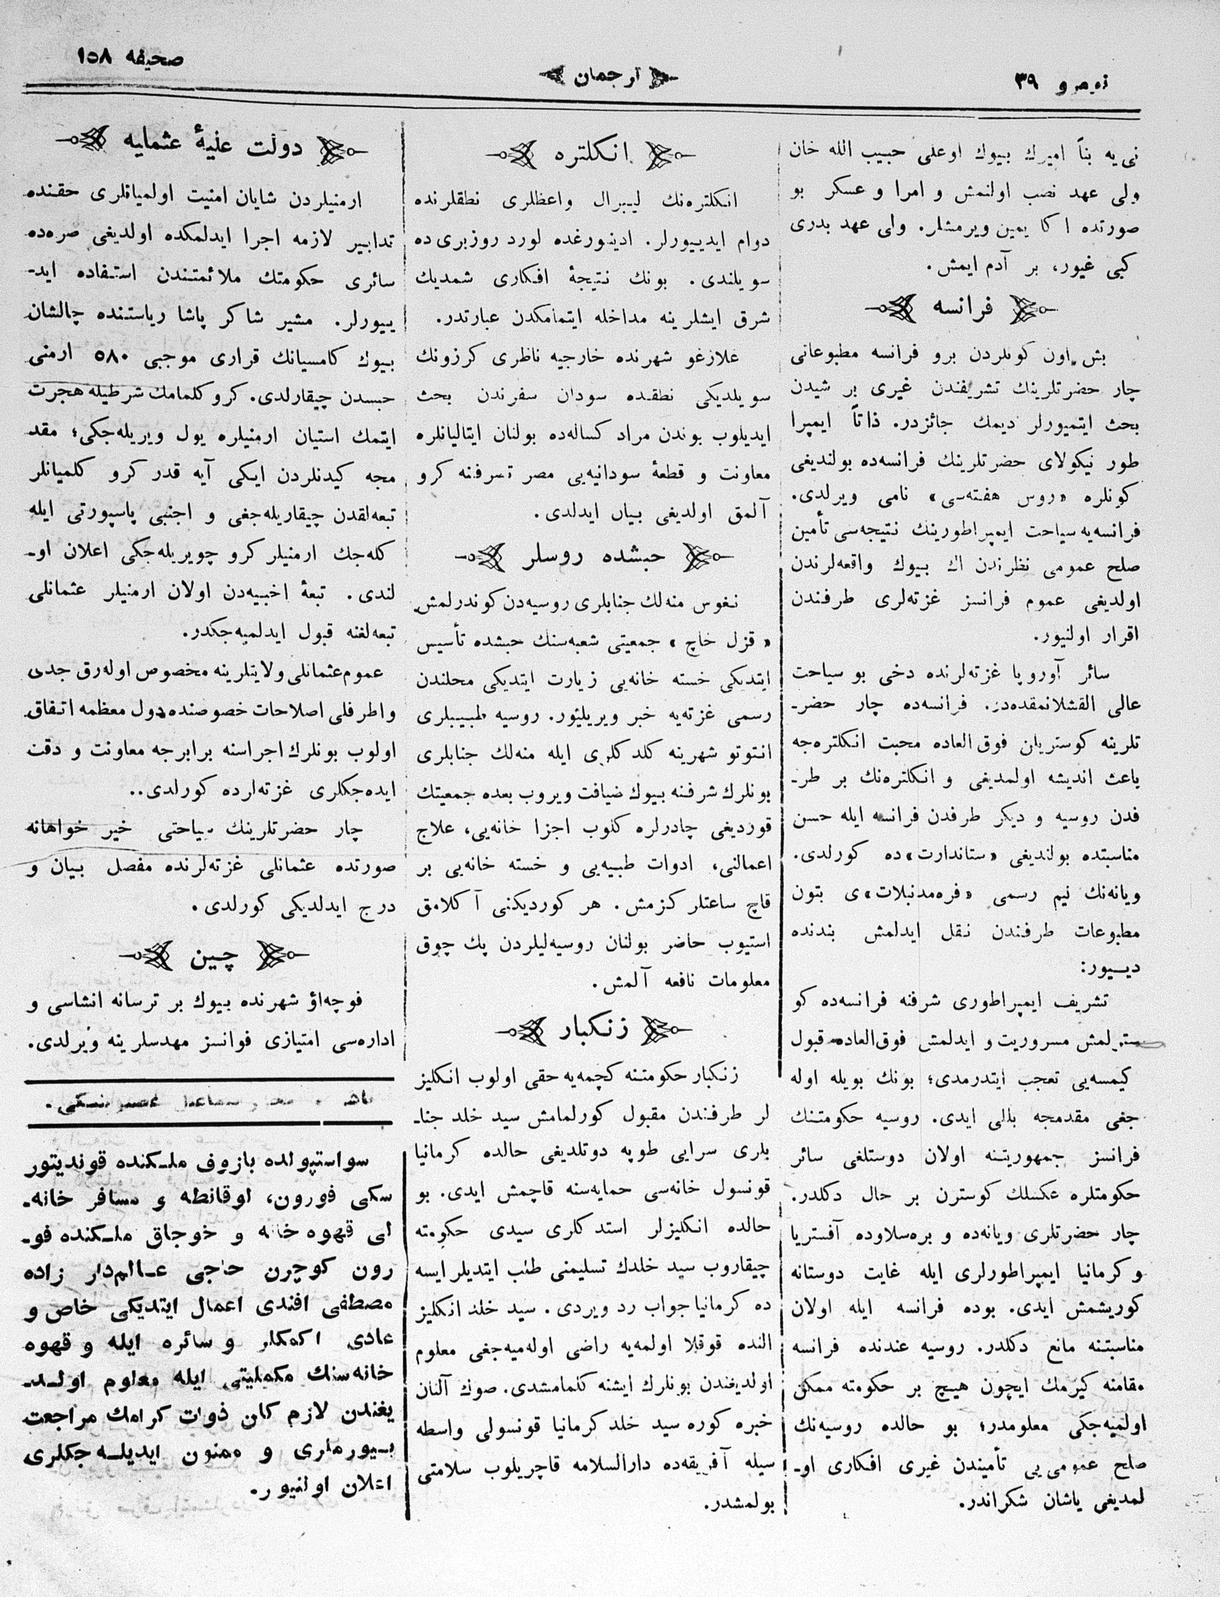 نومرو ٣٩
ترجمان
صحيفه ١٥٨
نى‌يه بناً اميرك بيوك اوغلى حبيب الله خان
ولى عهد نصب اولنمش و امرا و عسكر بو
صورتده اكا يمين ويرمشلر. ولى عهد بدرى
كبى غيور، بر آدم ايمش.
فرانسه
بش اون كونلردن برو فرانسه مطبوعاتى
چار حضرتلرينك تشريفندن غيرى بر شيدن
بحث ايتميورلر ديمك جائزدر. ذاتاً ايمپرا
طور نيكولاى حضرتلرينك فرانسه‌ده بولنديغى
كونلره «روس هفته‌سى» نامى ويرلدى.
فرانسه‌يه سياحت ايمپراطورينك نتيجه‌سى تأمين
صلح عمومى نظرندن اك بيوك واقعه‌لرندن
اولديغى عموم فرانسز غزته‌لرى طرفندن
اقرار اولنيور.
سائر آوروپا غزته‌لرنده دخى بو سياحت
عالى القشلانمقده‌در. فرانسه‌ده چار حضر-
تلرينه كوستريلن فوق العاده محبت انكلتره‌جه
باعث انديشه اولمديغى و انكلتره‌نك بر طر-
فدن روسيه و ديكر طرفدن فرانسه ايله حسن
مناسبتده بولنديغى «ستاندارت»ده كورلدى.
ويانه‌نك نيم رسمى «فره‌مدنبلات»ى بتون
مطبوعات طرفندن نقل ايدلمش بندنده
ديـيور:
تشريف ايمپراطورى شرفنه فرانسه‌ده كو
ستريلمش مسروريت و ايدلمش فوق‌العاده قبول
كيمسه‌يى تعجب ايتدرمدى؛ بونك بويله اوله
جغى مقدمجه بللى ايدى. روسيه حكومتنك
فرانسز جمهوريتنه اولان دوستلغى سائر
حكومتلره عكسلك كوسترن بر حال دكلدر.
چار حضرتلرى ويانه‌ده و بره‌سلاوده آفستريا
و كرمانيا ايمپراطورلرى ايله غايت دوستانه
كوريشمش ايدى. بوده فرانسه ايله اولان
مناسبتنه مانع دكلدر. روسيه عندنده فرانسه
مقامنه كيرمك ايچون هيچ بر حكومته ممكن
اولميه‌جكى معلومدر؛ بو حالده روسيه‌نك
صلح عمومى‌يى تأميندن غيرى افكارى او-
لمديغى ياشان شكراندر.
انكلتره
انكلتره‌نك ليبرال واعظلرى نطقلرنده
دوام ايدييورلر. ادينورغده لورد روزبرى ده
سويلندى. بونك نتيجۀ افكارى شمديك
شرق ايشلرينه مداخله ايتمامكدن عبارتدر.
غلازغو شهرنده خارجيه ناظرى كرزونك
سويلديكى نطقده سودان سفرندن بحث
ايديلوب بوندن مراد كساله‌ده بولنان ايتاليانلره
معاونت و قطعۀ سودانيه‌يى مصر تصرفنه كرو
آلمق اولديغى بيان ايدلدى.
حبشده روسلر
نغوس منه‌لك جنابلرى روسيه‌دن كوندرلمش
« قزل خاچ » جمعيتى شعبه‌سنك حبشده تأسيس
ايتديكى خسته خانه‌يى زيارت ايتديكى محلندن
رسمى غزته‌يه خبر ويريليور. روسيه طبيبلرى
انتوتو شهرينه كلدكلرى ايله منه‌لك جنابلرى
بونلرك شرفنه بيوك ضيافت ويروب بعده جمعيتك
قورديغى چادرلره كلوب اجزا خانه‌يى، علاج
اعمالنى، ادوات طبيه‌يى و خسته خانه‌يى بر
قاچ ساعتلر كزمش. هر كورديكنى آكلامق
استيوب حاضر بولنان روسيه‌ليلردن پك چوق
معلومات نافعه آلمش.
زنكبار
زنكبار حكومتنه كچمه‌يه حقى اولوب انكليز
لر طرفندن مقبول كورلمامش سيد خلد جنا-
بلرى سرايى طوپه دوتلديغى حالده كرمانيا
قونسول خانه‌سى حمايه‌سنه قاچمش ايدى. بو
حالده انكليزلر استدكلرى سيدى حكومته
چيقاروب سيد خلدك تسليمنى طلب ايتديلرايسه
ده كرمانيا جواب رد ويردى. سيد خلد انكليز
النده قوقلا اولمه‌يه راضى اوله‌ميه‌جغى معلوم
اولديغندن بونلرك ايشنه كلمامشدى. صوك آلنان
خبره كوره سيد خلد كرمانيا قونسولى واسطه
سيله آفريقه‌ده دارالسلامه قاچريلوب سلامتى
بولمشدر.
دولت عليۀ عثمانيه
ارمنيلردن شايان امنيت اولميانلرى حقنده
تدابير لازمه اجرا ايدلمكده اولديغى صره‌ده
سائرى حكومتك ملائمتندن استفاده ايد-
ييورلر. مشير شاكر پاشا رياستنده چالشان
بيوك كامسيانك قرارى موجبى ٥٨٠ ارمنى
حبسدن چيقارلدى. كرو كلمامك شرطيله هجرت
ايتمك استيان ارمنيلره يول ويريله‌جكى؛ مقد
مجه كيدنلردن ايكى آيه قدر كرو كلميانلر
تبعه‌لقدن چيقاريله‌جغى و اجنبى پاسپورتى ايله
كله‌جك ارمنيلر كرو چويريله‌جكى اعلان او-
لندى. تبعۀ اجنبيه‌دن اولان ارمنيلر عثمانلى
تبعه‌لغنه قبول ايدلميه‌جكدر.
عموم عثمانلى ولايتلرينه مخصوص اوله‌رق جدى
و اطرفلى اصلاحات خصوصنده دول معظمه اتفاق
اولوب بونلرك اجراسنه برابرجه معاونت و دقت
ايده‌جكلرى غزته‌لرده كورلدى..
چار حضرتلرينك سياحتى خير خواهانه
صورتده عثمانلى غزته‌لرنده مفصل بيان و
درج ايدلديكى كورلدى.
چين
فوچه‌اؤ شهرنده بيوك بر ترسانه انشاسى و
اداره‌سى امتيازى فرانسز مهندسلرينه ويرلدى.
ناشر و محرر اسماعيل غصپرينسكى.
سواستپولده بازوف ملـكنده قونديتور
سكى فورون، اوقانطه و مسافر خانه-
لى قهوه خانه و خوجاق ملـكنده فو-
رون كوچرن حاجى عـالمدار زاده
مصطفى افندى اعمال ايتديكى خاص و
عادى اكمكلر و سائره ايله و قهوه
خانه‌سنك مكمليتى ايله معلوم اولـد-
يغندن لازم كان ذوات كرامك مراجعت
بـيورملرى و ممنون ايديلـه‌جكلرى
اعلان اولنيور.